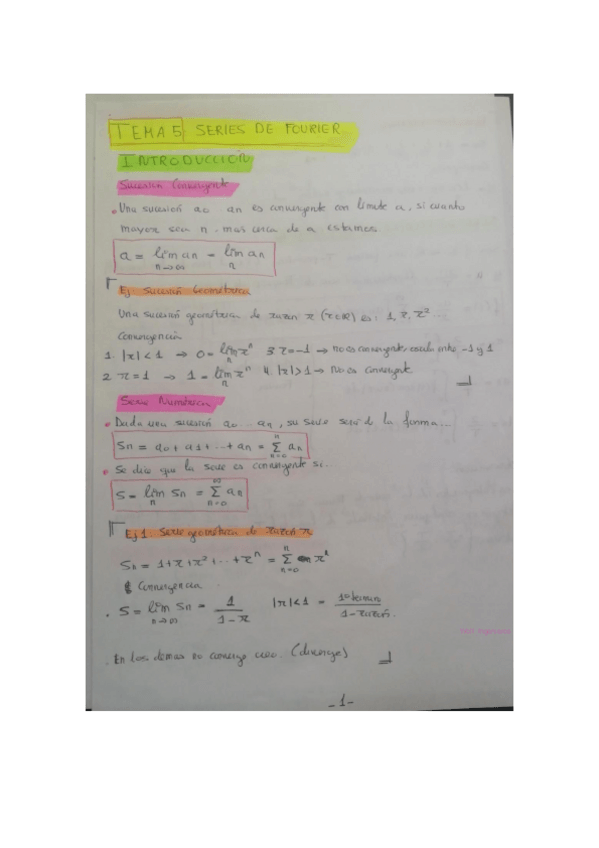 TEMA 5 SERIES DE FOURIER
INTRODUCCIÓN
Sucesión Convergente
• Una sucesión a0 ... an es convergente con límite a, si cuanto
mayor sea n, mas cerca de a estamos.
a = lim n→∞ an = lim n an
Ej: Sucesión Geométrica
Una sucesión geométrica de razon r (r∈ℝ) es: 1, r, r² ...
Convergencia
1. |r| < 1 → 0 = lim n rⁿ 3 r=-1 → no es convergente oscila entre -1 y 1
2 r = 1 → 1 = lim n rⁿ 4 |r| > 1 → No es convergente
Serie Numérica
• Dada una sucesión a0 ... an, su serie será de la forma...
Sn = a0 + a1 + ... + an = Σ n=0 n an
• Se dice que la serie es convergente si..
S = lim n Sn = Σ n=0 ∞ an
Ej 1: Serie geométrica de razon r
Sn = 1 + r + r² + ... + rⁿ = Σ n=0 n rⁿ
Convergencia
• S = lim n→∞ Sn = 1/(1-r) |r| < 1 = 1º termino/(1-razón).
. En los demas no converge creo. (diverge)
-1-